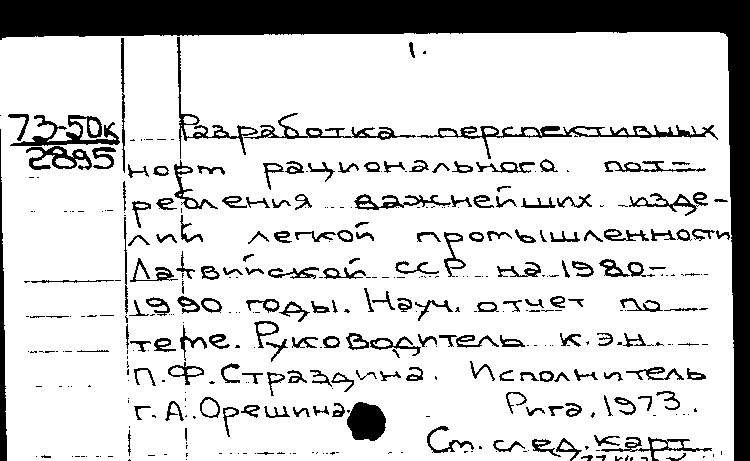 1.
73-50к
2895
Разработка перспективных
норм рационального пот-
ребления важнейших изде-
лий легкой промышленности
Латвийской ССР на 1980-
1990 годы. Науч. отчет по
теме. Руководитель к.э.н.
П.Ф.Страздина. Исполнитель
г.А.Орешина. Рига, 1973.
См. след. карт.